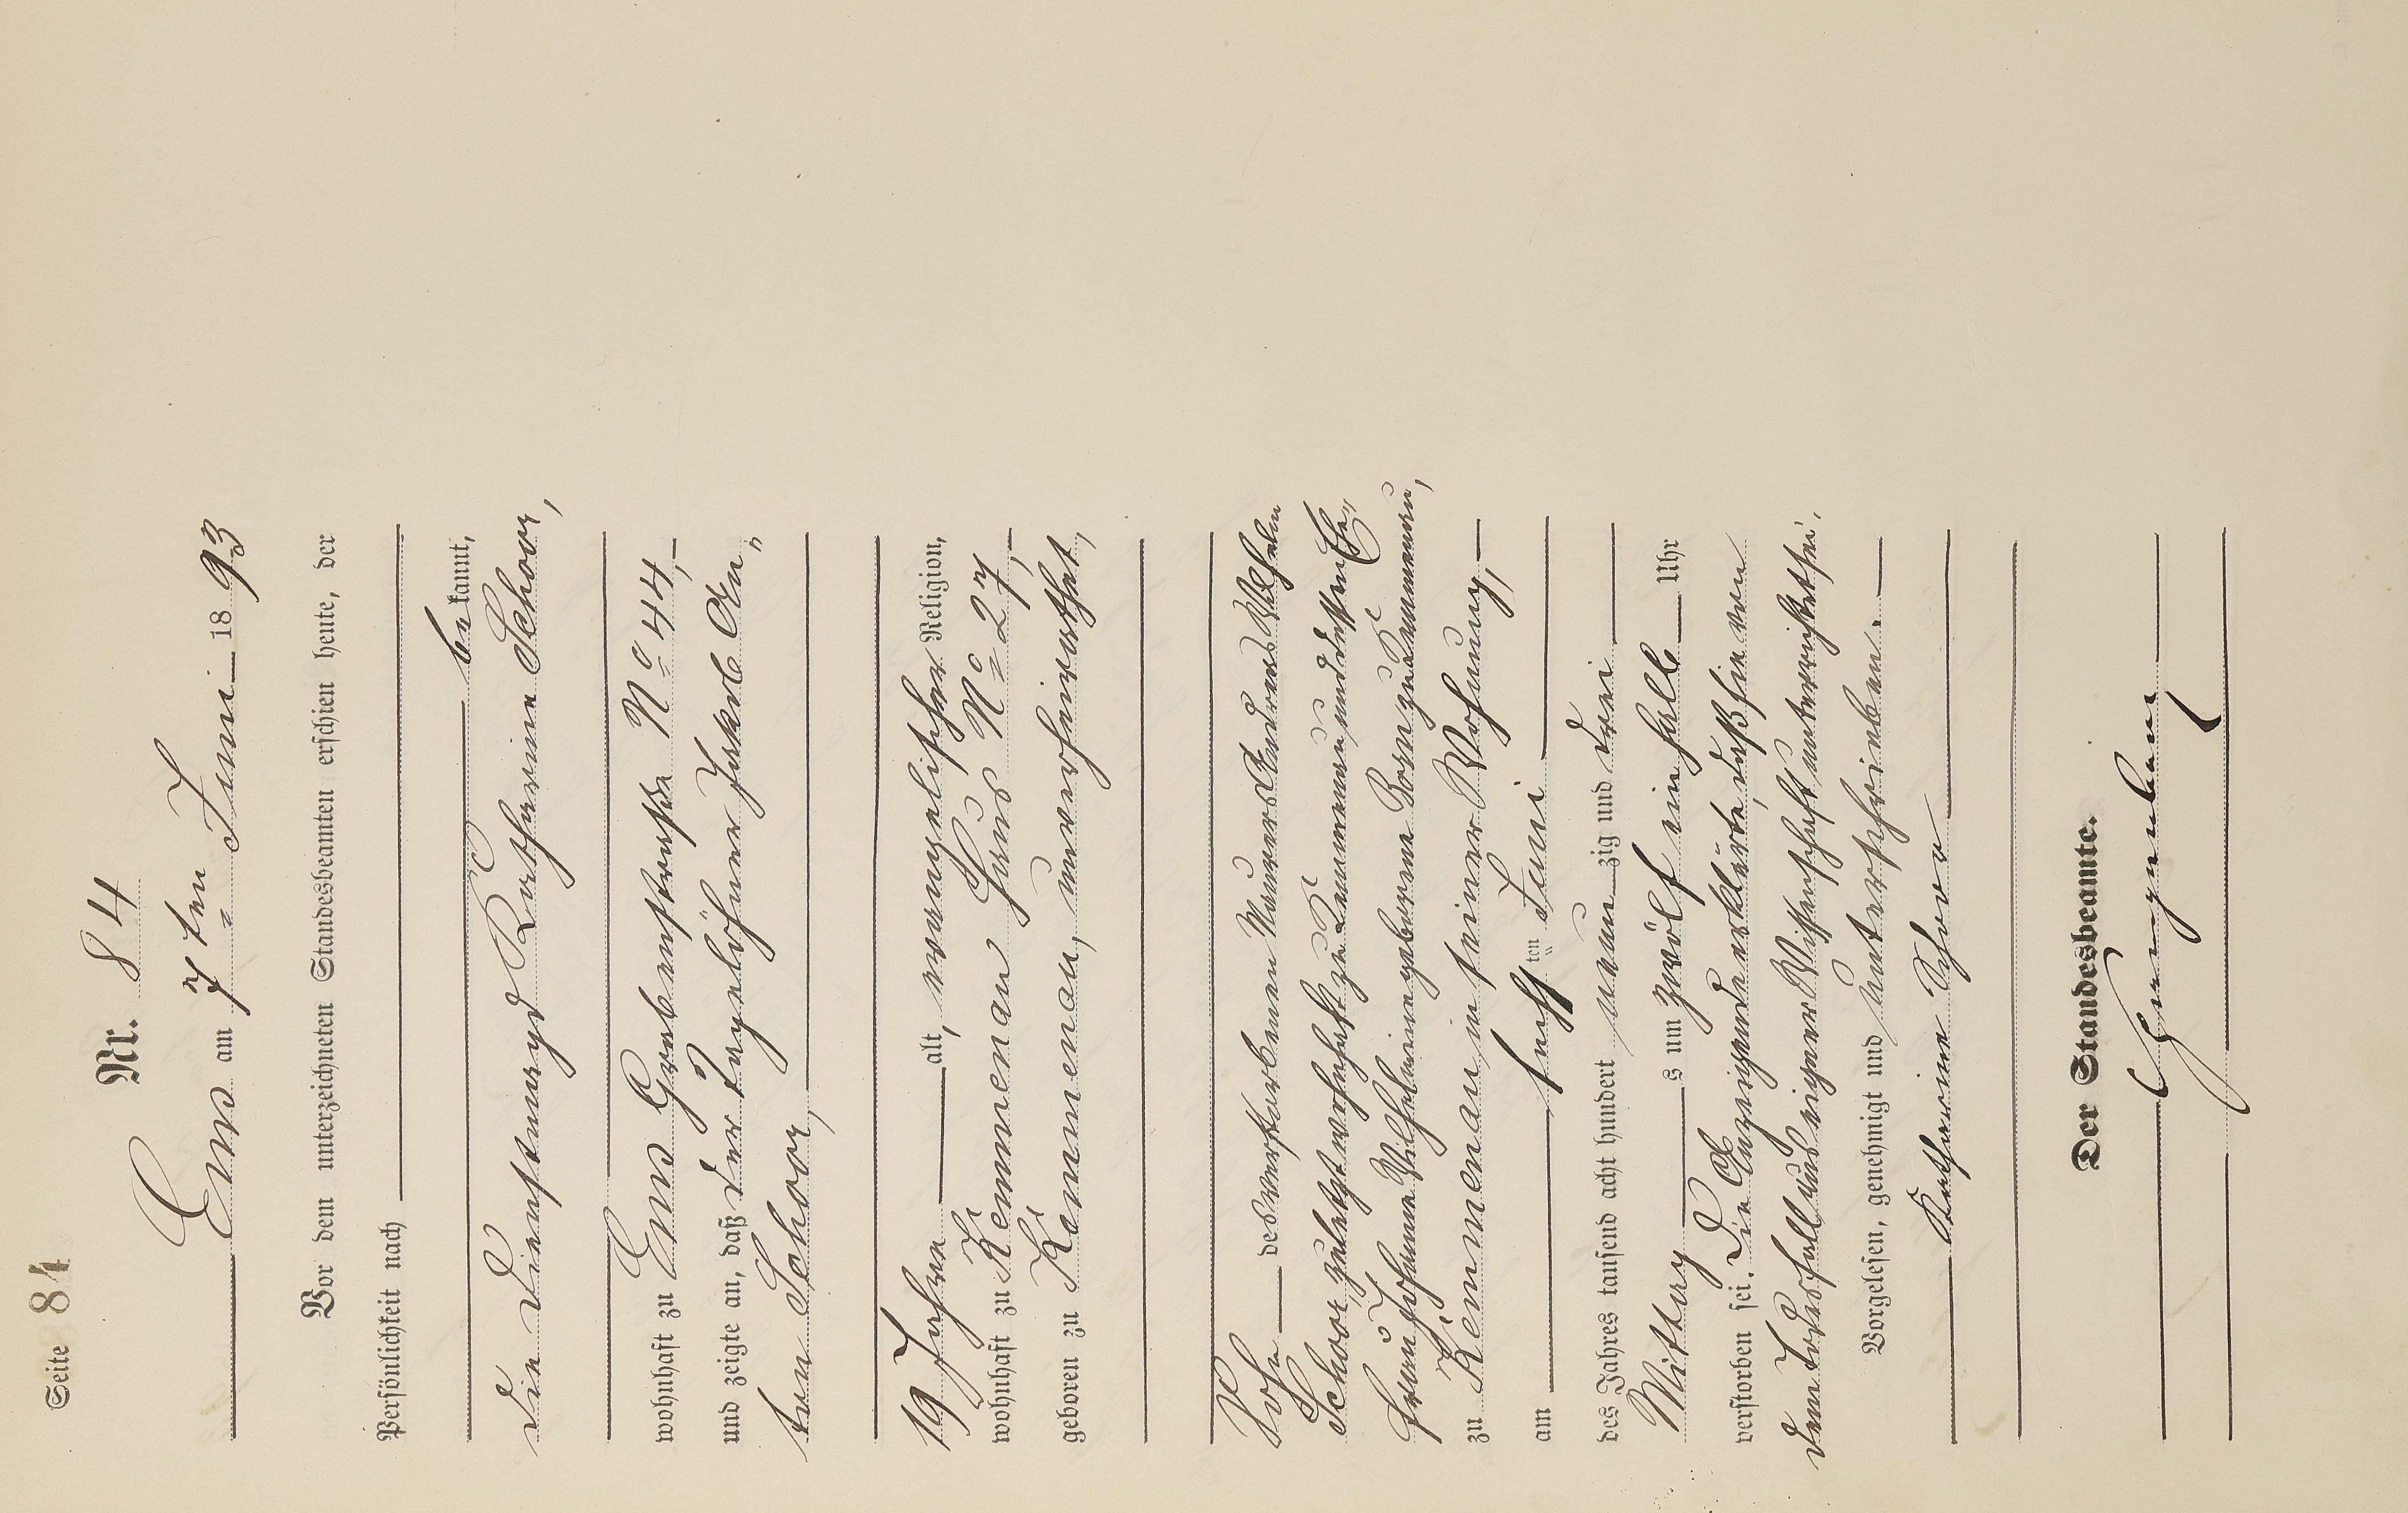 Seite 84
Nr. 84
Ems am 7ten Juni 1893
Vor dem unterzeichneten Standesbeamten erschien heute, der
Persönlichkeit nach
bekannt,
die Dienstmagd Katharine Schoor,
wohnhaft zu Ems Grabenstraße No 44,
und zeigte an, daß der Tagelöhner Jakob An„
ton Schoor,
19 Jahre alt, evangelischer Religion,
wohnhaft zu Kemmenau Haus No 27,
geboren zu Kemmenau, unverheirathet,
Sohn des verstorbenen Maurers Andreas Wilhelm
Schoor, zuletzt wohnhaft zu Kemmenau und dessen Ehe„
frau Johanna Wilhelmine geborene Born zu Kemmenau,
zu Kemmenau, in seiner Wohnung,
am sechsten Juni
des Jahres tausend acht hundert neunzig und drei
Mittags um zwölf ein halb Uhr
verstorben sei. Die Anzeigende erklärte, daß sie von
dem Todesfall aus eigener Wissenschaft unterrichtet sei.
Vorgelesen, genehmigt und unterschrieben.
Katharine Schoor
Der Standesbeamte.